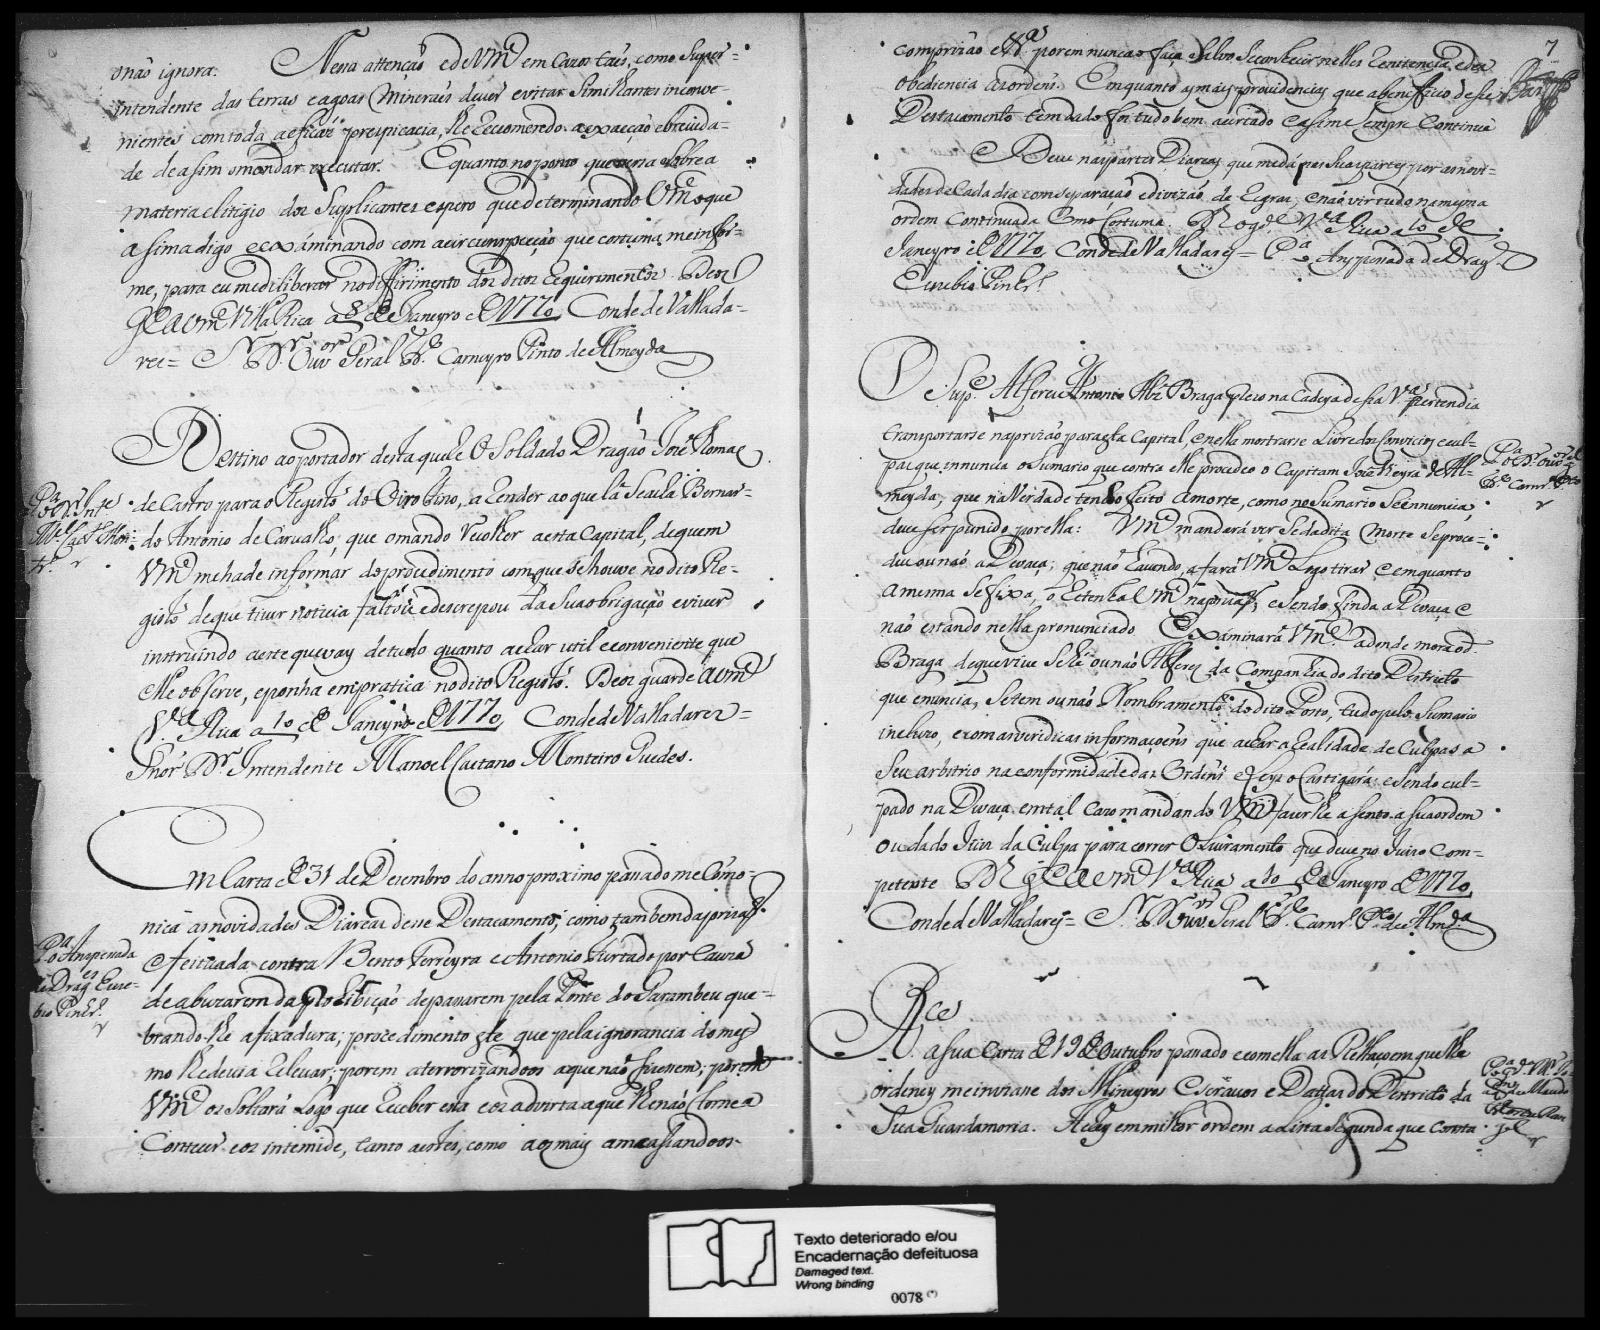 onão ignora. Nessa attenção e de Vm.ce em cazos taes, como Super-
intendente das terras e agoas Mineraes dever evitar similhantes inconve-
nientes com toda a eficáz prespicacia, lhe recomendo a exacção e brevida-
de de asim o mandar executar. E quanto no ponto que versa sobre a
materia e litigio dos Suplicantes espero que determinando Vm.ce o que
asima digo e examinando com a circunspecção que costuma, me infor-
me, para eu me dilibetar no differimento dos ditos requerimentos. Deos
G.de a Vm.ce Villa Rica a 8 de Janeyro de 1770, Conde de Vallada-
res = S.r D.r Ouv.or Geral Carneyro Pinto de Almeyda
Destino ao portador desta que he o Soldado Dragão José Thomaz
de Castro para o Registo do Ouro fino, a render ao que lá se acha Bernar-
do Antonio de Carvalho, que o mando recolher a esta Capital, de quem
Vm.ce me ha de informar do procedimento com que se houve no dito Re-
gisto de que tiver noticia faltou e descrepou da sua obrigação e viver
instruindo a este que vay de tudo quanto achar util e conveniente que
elle observe, e ponha em pratica no dito Registo. Deos guarde a Vm.ce
V.a Rica a 10 de Janeyro de 1770, Conde de Valladares =
Snór D.r Intendente Manoel Caetano Monteiro Guedes.
P.a o D.r Int.e
M.el Caet.o Mon-
tr.o
Em Carta de 31 de Dezembro do anno proximo passado me como-
nica as novidades Diarias desse Destacamento, como tambem da prizaõ
efeituada contra Bento Ferreyra e Antonio Furtado por cauza
de abuzarem da prohibição de passarem pela Ponte do Parambeu que-
brando-lhe a fixadura; procedimento este que pela ignorancia do mes-
mo lhe devia relevar; porem aterrorizandoos a que não fizessem; porem
Vm.ce os Soltará Logo que receber esta e os advirta a que lhe não torne a
Conteser e os intemide, tanto a estes, como aos mais ameassandoos
P.a o Anspenada
de Drag.es Euze-
bio Pinhr.o
7
com prizão porem nunca o faça Salvo se conhecer nelles renitencia e des
obediencia as ordens. Em quanto as mais providencias que a beneficio desse
Destacamento tem dado foi tudo bem acertado e asim e sempre Continue
Deve nas partes Diarias que me dá por suas partes por as novi-
dades de Cada dia com separação e divizão de regras, e não vir tudo na mesma
ordem Continuada Como Costuma. D.s o g.de V.a Rica a 10 de
Janeyro de 1770, Conde de Valladares = P.a o Anspenada de Drag.es
Euzebio Pinhr.o
O Sup.e Alferes Antonio Alz Braga prezo na Cadeya desta V.a pertendia
transportarse na prizão para esta Capital, e nella mostrarse Livre das convicios e cul-
pas que innuncia o Sumario que contra elle procedeo o Capitam José Vieyra de Al-
meyda, que na Verdade tendo feito a morte, como no Sumario se ennuncia,
deve ser punido por ella: Vm.ce mandará ver se da dita Morte se proce-
deu ou não a Devaça; que não havendo, a fará Vm.ce Logo tirar e em quanto
a mesma se fixa, o retenha Vm.ce na prizaõ; e sendo finda a Devaça e
não estando nella pronunciado Examinará Vm.ce adonde mora o d.
Braga de que vive se hé ou não Alferes da Companhia do dito Destricto
que enuncia, se tem ou não Nombramento do dito Posto, tudo pelo Sumario
incluzo, e com as veridicas informaçoens que achar a realidade de Culpas a
Seu arbitrio na conformidade das Ordens e Leys o Castigará: e sendo cul-
pado na Devaça em tal cazo mandando Vm.ce fazer lhe asento a sua ordem
ou do Juiz da Culpa para correr o Livramento que deve no Juizo Com-
petente D.s g.de a Vm.ce V.a Rica a 10 de Janeyro de 1770,
Conde de Valladares = S.r D.r Ouv.or Geral Carnr.o P.to de Almd.a
P.a o D.r Ouv.or
Carnr.o
Recebi a sua Carta de 19 de Outubro passado e com ella as Rellaçoens que lhe
ordeney me inviase dos Mineyros Escravos e Dattas do Destrito da
Sua Guardamoria. Achey em milhor ordem a Lista Segunda que Conta
Texto deteriorado e/ou
Encadernação defeituosa
Damaged text.
Wrong binding
0078 (*)